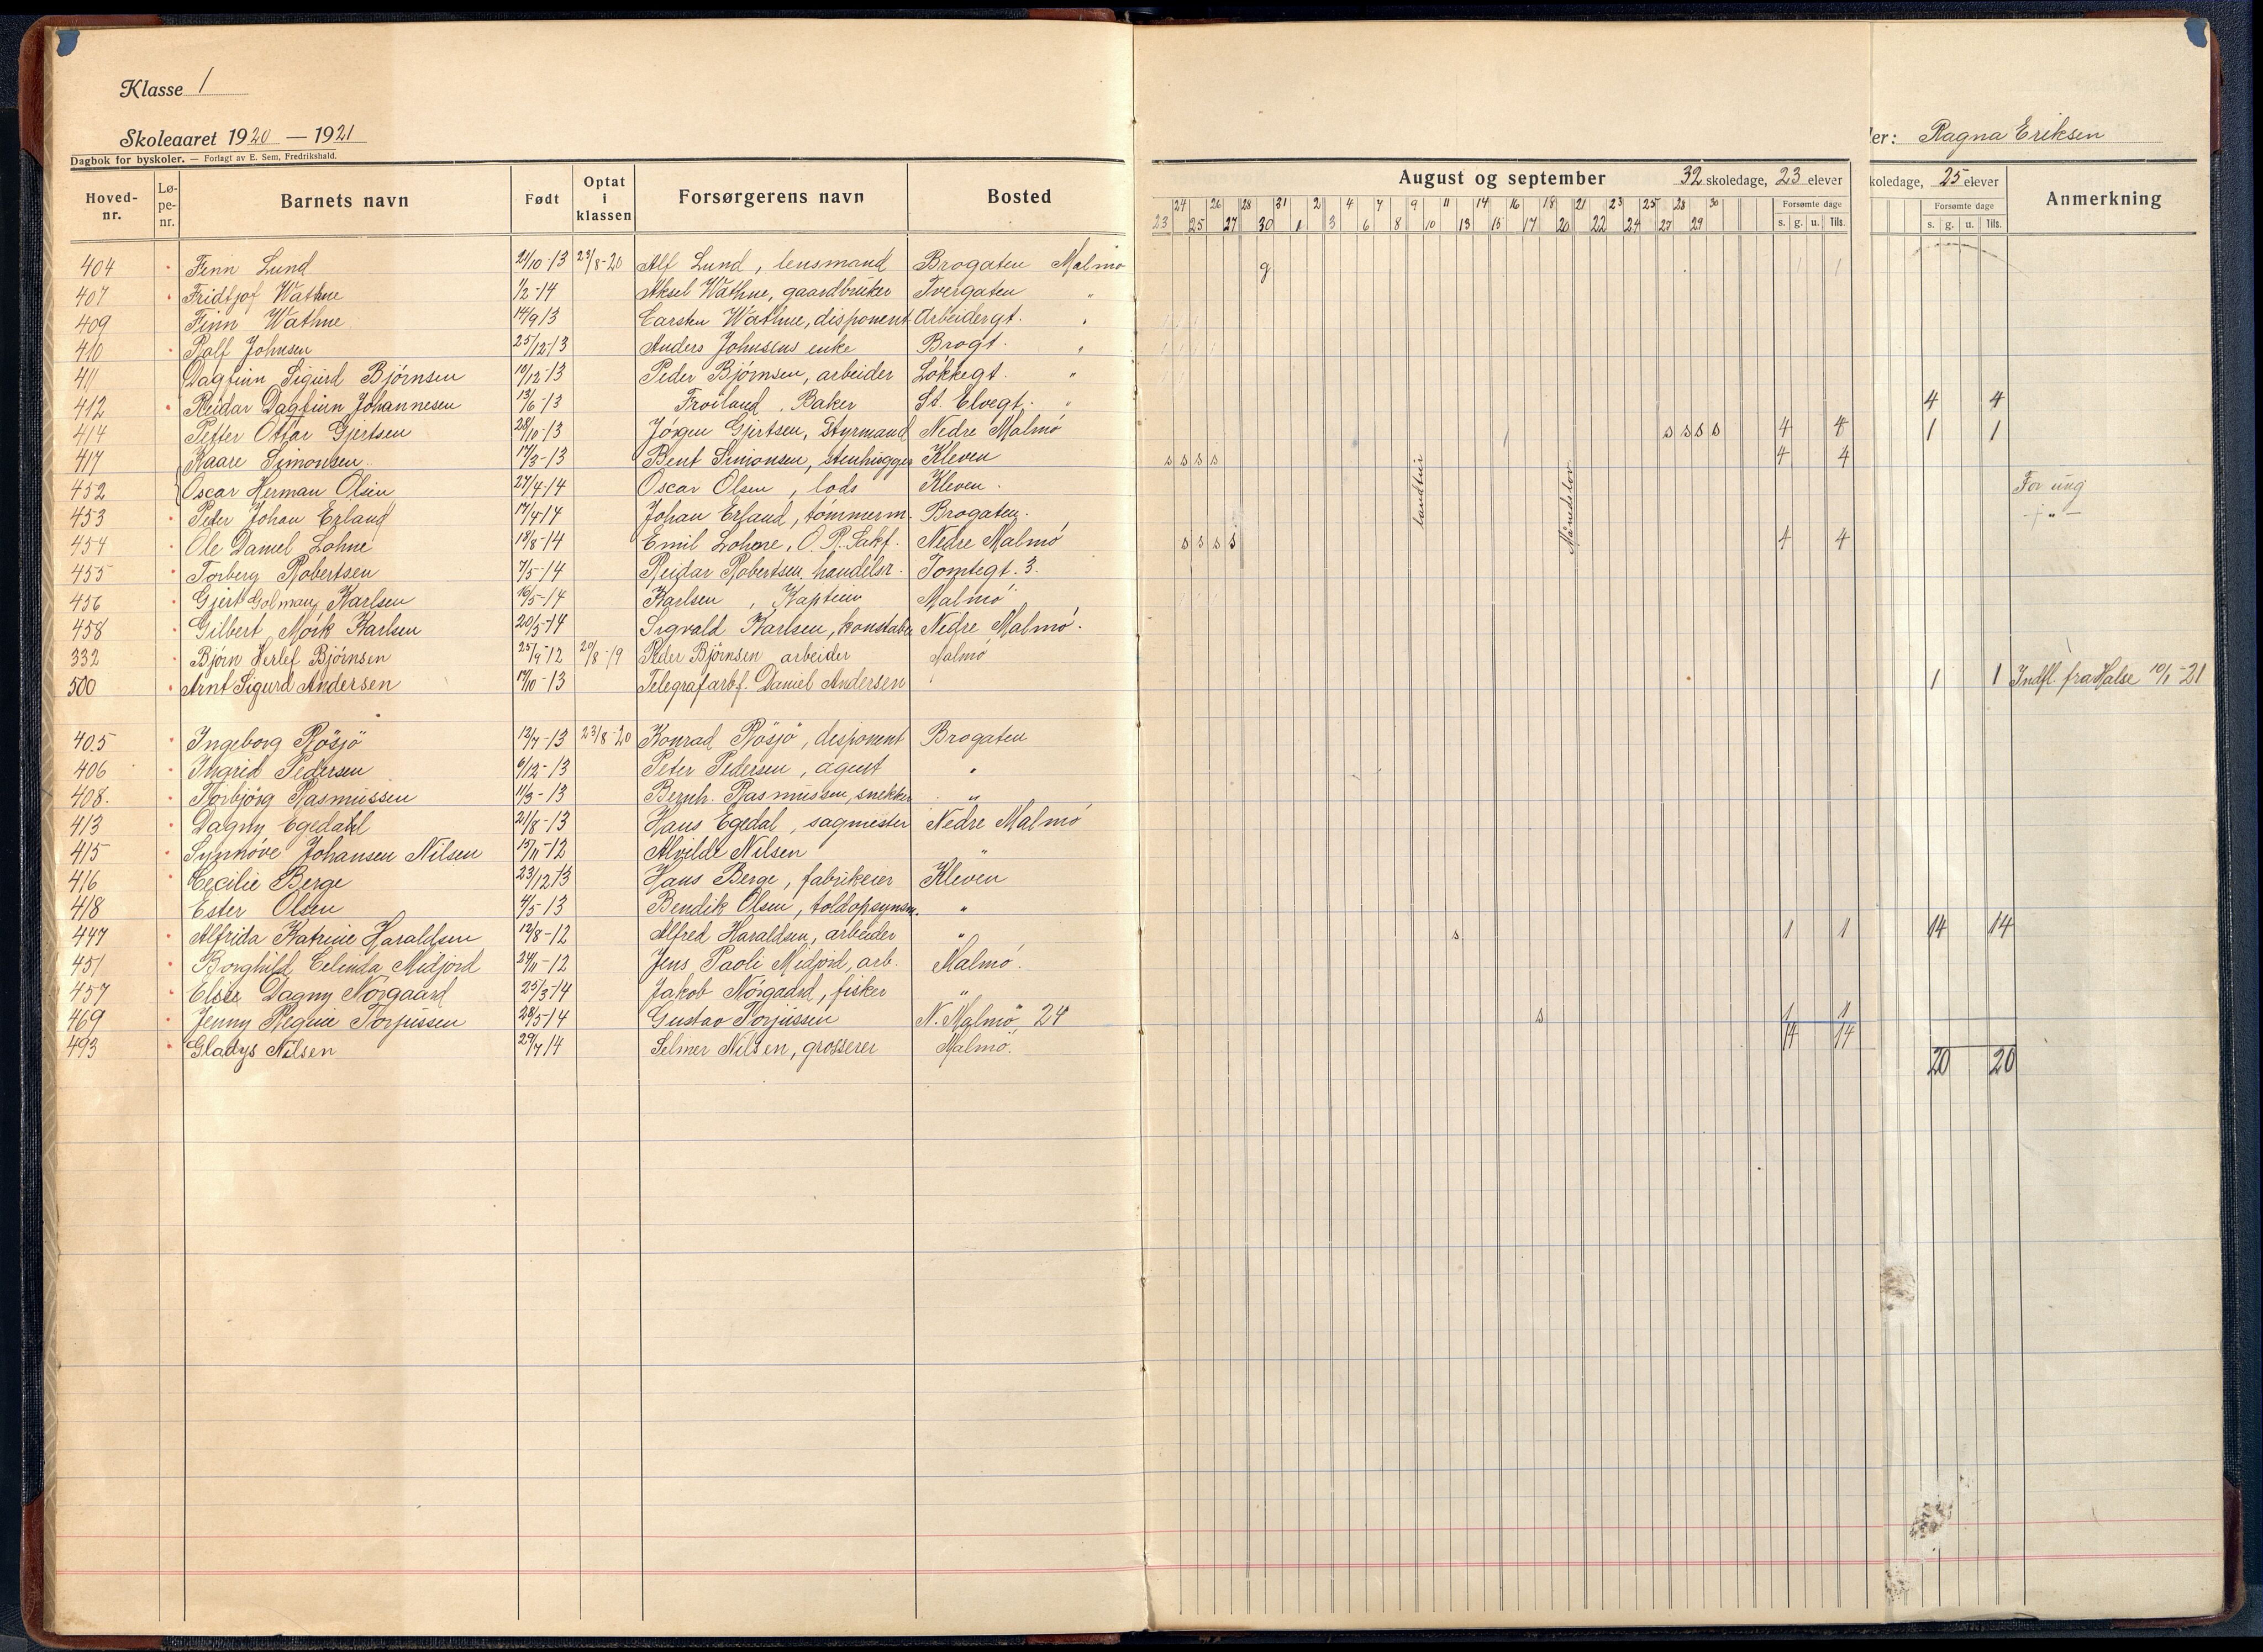 Klasse 1
Skoleaaret 1920 — 1921
Dagbok for byskoler. — Forlagt av E. Sem, Fredrikshald.
ler: Ragna Eriksen
Hoved-nr. Lø-pe-nr. Barnets navn Født Optat i klassen Forsørgerens navn Bosted
August og september 32 skoledage, 23 elever
koledage, 25 elever Anmerkning
24 26 28 31 2 4 7 9 11 14 16 18 21 23 25 28 30 Forsømte dage
23 25 27 30 1 3 6 8 10 13 15 17 20 22 24 27 29 s. g. u. Tils.
Forsømte dage
s. g. u. Tils.
404 Finn Lund 21/10-13 23/8-20 Alf Lund, lensmand Brogaten Malmø g 1 1
407 Fridtjof Wathne 1/2-14 Aksel Wathne, gaardbruker Tvergaten "
409 Finn Wathne 14/9 13 Carsten Wathne, disponent Arbeidergt. "
410 Rolf Johnsen 25/12-13 Anders Johnsens enke Brogt. "
411 Dagfinn Sigurd Bjørnsen 10/12-13 Peder Bjørnsen, arbeider Løkkegt. "
412 Reidar Dagfinn Johannesen 13/6-13 Froiland, Baker St. Elvegt. " 4 4
414 Petter Ottar Gjertsen 28/10-13 Jørgen Gjertsen, Styrmand Nedre Malmø s s s s 4 4 1 1
417 Kaare Simonsen 17/3-13 Bent Simonsen, stenhugger Kleven s s s s 4 4
452 Oscar Herman Olsen 27/4-14 Oscar Olsen, lods Kleven. For ung
453 Peder Johan Erland 17/4-14 Johan Erland, tømmerm. Brogaten. - " -
454 Ole Daniel Lohne 18/8-14 Emil Lohne, O. R. Sakf. Nedre Malmø s s s s 4 4
455 Torberg Robertsen 7/5-14 Reidar Robertsen, handelsr. Tomtegt. 3.
456 Gjert Golman Karlsen 16/5-14 Karlsen, Kaptein Malmø
458 Gilbert Mørk Karlsen 20/5-14 Sigvald Karlsen, konstabel Nedre Malmø.
332 Bjørn Herlef Bjørnsen 25/4-12 20/8-19 Peder Bjørnsen arbeider Malmø
500 Arnt Sigurd Andersen 17/10-13 Telegrafarbf. Daniel Andersen 1 1 Indfl. fra Halse 10/1-21
Landtur
Maanedslov
405 Ingeborg Røsjö 12/7-13 23/8-20 Konrad Røsjö, disponent Brogaten
406 Ingrid Pedersen 6/12-13 Peter Pedersen, agent "
408. Torbjørg Rasmussen 11/3-13 Bernh. Rasmussen, snekker "
413 Dagny Egedahl 21/8-13 Hans Egedal, sagmester Nedre Malmø
415 Synnøve Johansen Nilsen 15/11-12 Alvilde Nilsen "
416 Cecilie Berge 23/12 13 Hans Berge, fabrikeier Kleven
418 Ester Olsen 4/5-13 Bendik Olsen, toldopsynsm. "
447 Alfrida Katrine Haraldsen 12/8-12 Alfred Haraldsen, arbeider " s 1 1 14 14
451 Borghild Celinda Midjord 24/11-12 Jens Paoli Midjord, arb. Malmø.
457 Elsie Dagny Nørgaard 25/3-14 Jakob Nørgaard, fisker "
469 Jenny Regine Torjussen 28/5-14 Gustav Torjussen N. Malmø 24 s 1 1
14 14
493 Gladys Nilsen 29/7 14 Selmer Nilsen, grosserer Malmø.
20 20